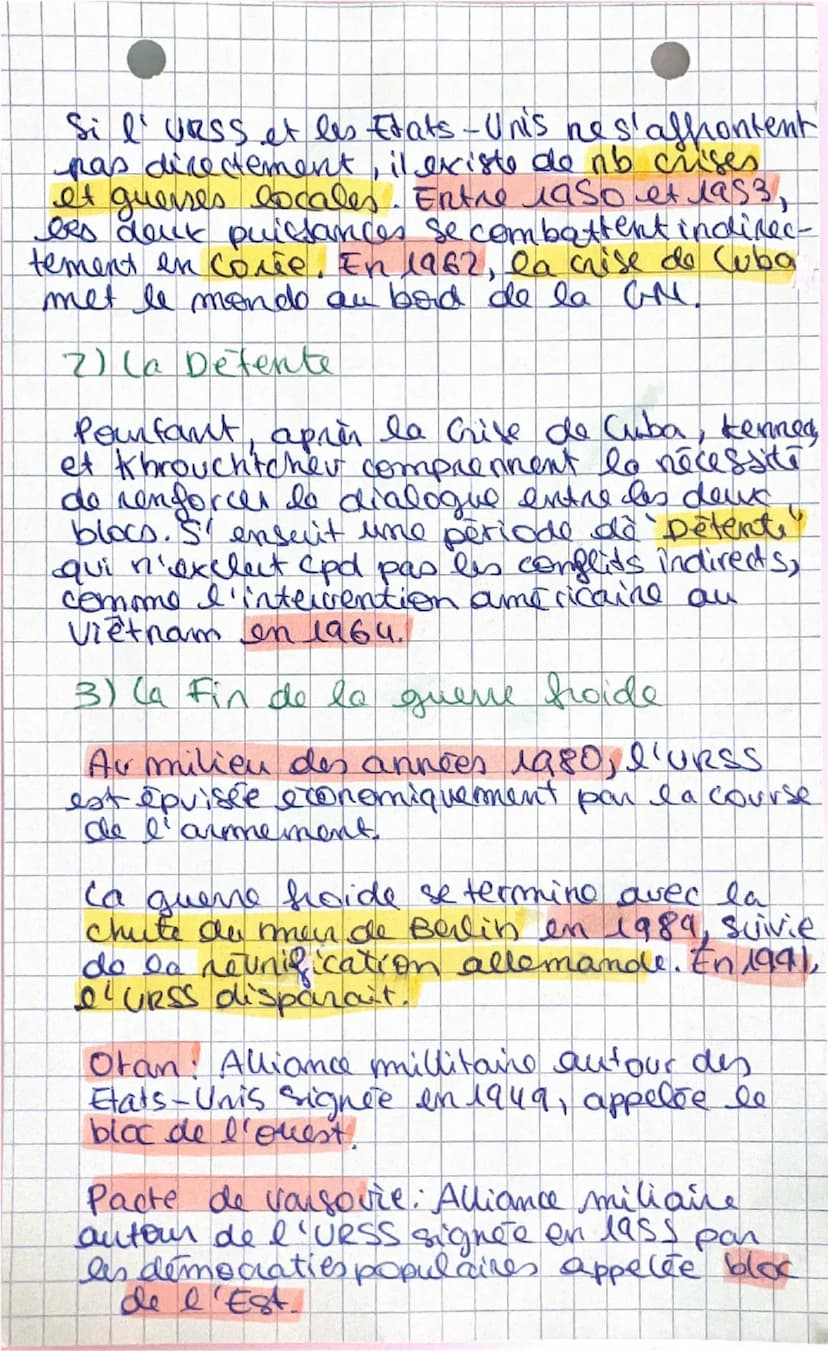 Si l'URSS et les Etats-Unis ne s'affrontent
pas directement, il existe de nb crises
et guerres locales. Entre 1950 et 1953,
les deux puissances se combattent indirec-
tement en Corée. En 1962, la crise de Cuba
met le monde au bord de la GM.
2) La Détente
Pourtant, après la Crise de Cuba, Kennedy
et Khrouchtchev comprennent la nécessité
de renforcer le dialogue entre les deux
blocs. S'ensuit une période dà "Détente"
qui n'exclut cpd pas les conflits indirects,
comme l'intervention américaine au
Viêtnam en 1964.
3) La Fin de la guerre froide
Au milieu des années 1980, l'URSS
est épuisée économiquement par la course
de l'armement.
La guerre froide se termine avec la
chute du mur de Berlin en 1989, suivie
de la réunification allemande. En 1991,
l'URSS disparait.
Otan: Alliance millitaire autour des
Etats-Unis signée en 1949, appelée le
bloc de l'ouest.
Pacte de varsovie: Alliance miliaire
autour de l'URSS signée en 1955 par
les démocraties populaires appelée bloc
de l'Est.